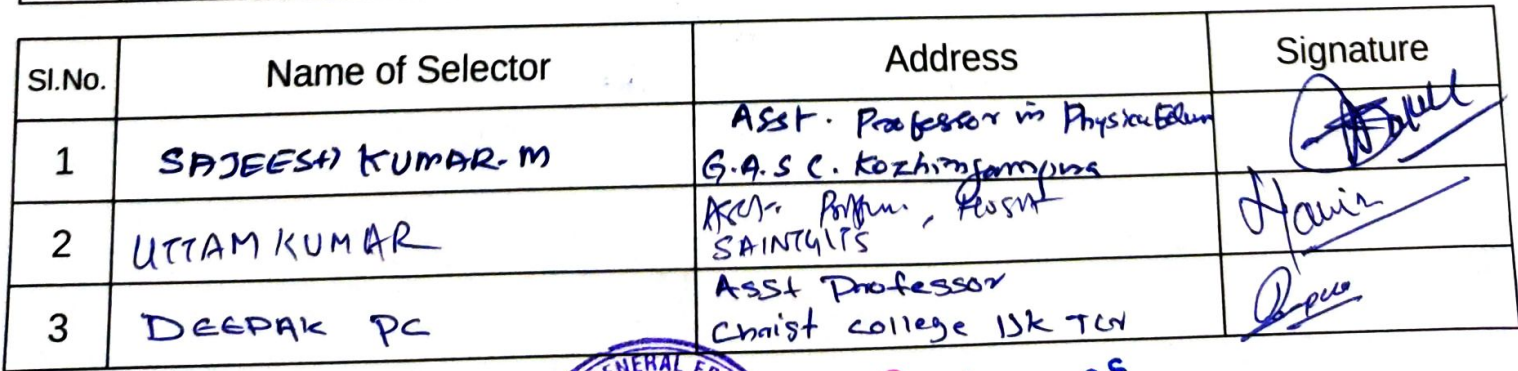 Sl.No. Name of Selector Address Signature
1 SAJEESH KUMAR-M Asst. Professor in Physical Edun
G.A.S C. Kozhinjampara
2 UTTAM KUMAR Asst.
3 DEEPAK PC Asst Professor
Christ college IJK TCR
NERAL